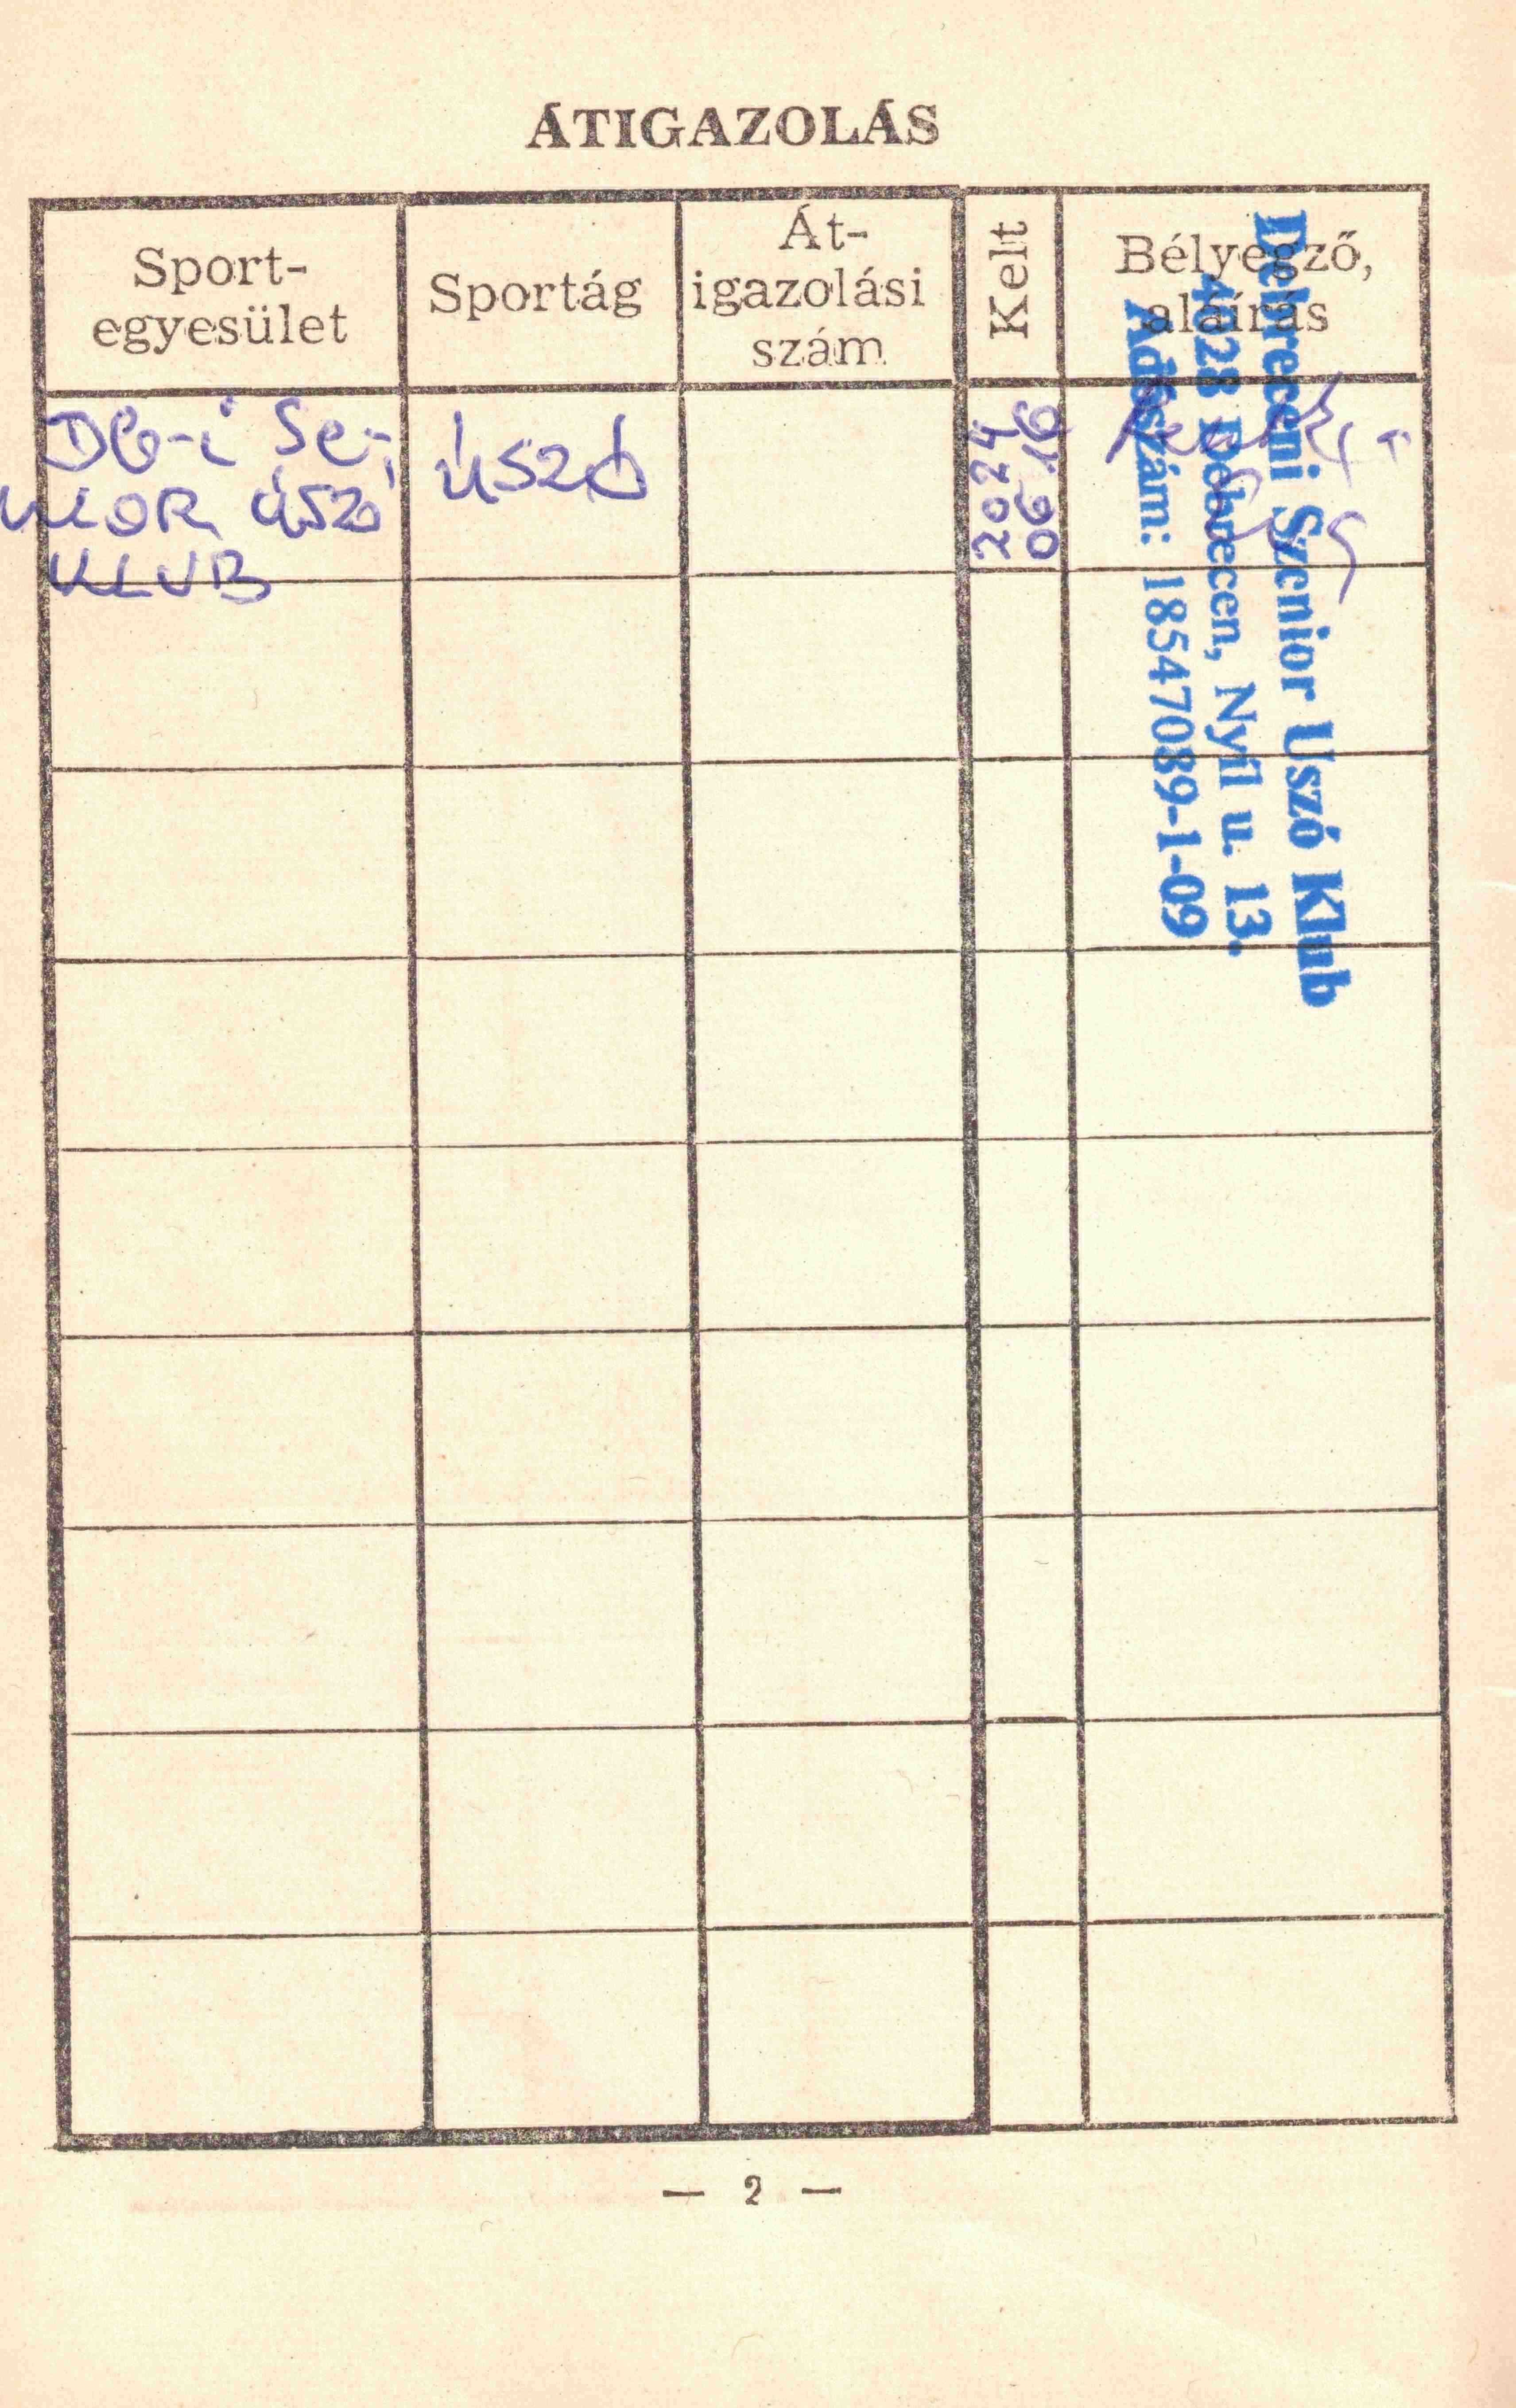 ÁTIGAZOLÁS
Sport-
egyesület
Sportág
Át-
igazolási
szám
Kelt
Bélyegző,
aláírás
Db-i Se-
NIOR ÚSZÓ
KLUB
ÚSZÓ
2024
06.16
Debreceni Szenior Uszó Klub
4028 Debrecen, Nyíl u. 13.
Adószám: 18547089-1-09
— 2 —